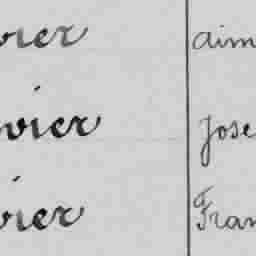 vier aim
vier Jose
vier Fran